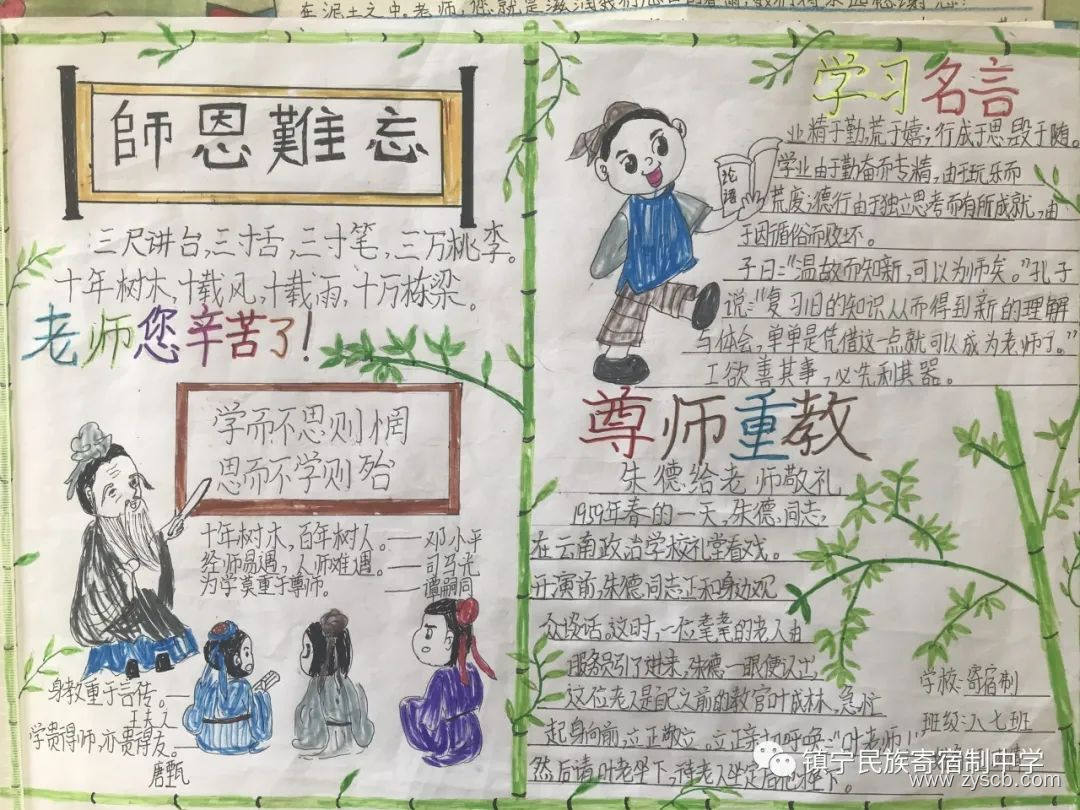 在泥土之中,老师,您就是滋润我们心田的春雨,我们将永远感谢您!
師恩難忘
三尺讲台,三寸舌,三寸笔,三万桃李。
十年树木,十载风,十载雨,十万栋梁。
老师您辛苦了!
学而不思则惘
思而不学则殆
十年树木,百年树人。——邓小平
经师易遇,人师难遇。——司马光
为学莫重于尊师。——谭嗣同
身教重于言传。
王夫之
学贵得师,亦贵得友。
唐甄
学习名言
论语
业精于勤,荒于嬉;行成于思,毁于随。
学业由于勤奋而专精,由于玩乐而
荒废;德行由于独立思考而有所成就,由
于因循俗而败坏。
子曰:“温故而知新,可以为师矣。”孔子
说:“复习旧的知识从而得到新的理解
与体会,单单是凭借这一点就可以成为老师了。”
工欲善其事,必先利其器。
尊师重教
朱德给老师敬礼
1959年春的一天,朱德同志
在云南政治学校礼堂看戏。
开演前,朱德同志正和身边观
众谈话。这时,一位耄耄的老人由
服务员引了进来,朱德一眼便认出
这位老人是自己以前的教官叶成林,急忙
起身向前,立正敬立,立正亲切呼唤“叶老师!”
然后请叶老坐下,待老人坐定后他才坐下。
学校:寄宿制
班级:八七班
镇宁民族寄宿制中学
www.zyscb.com